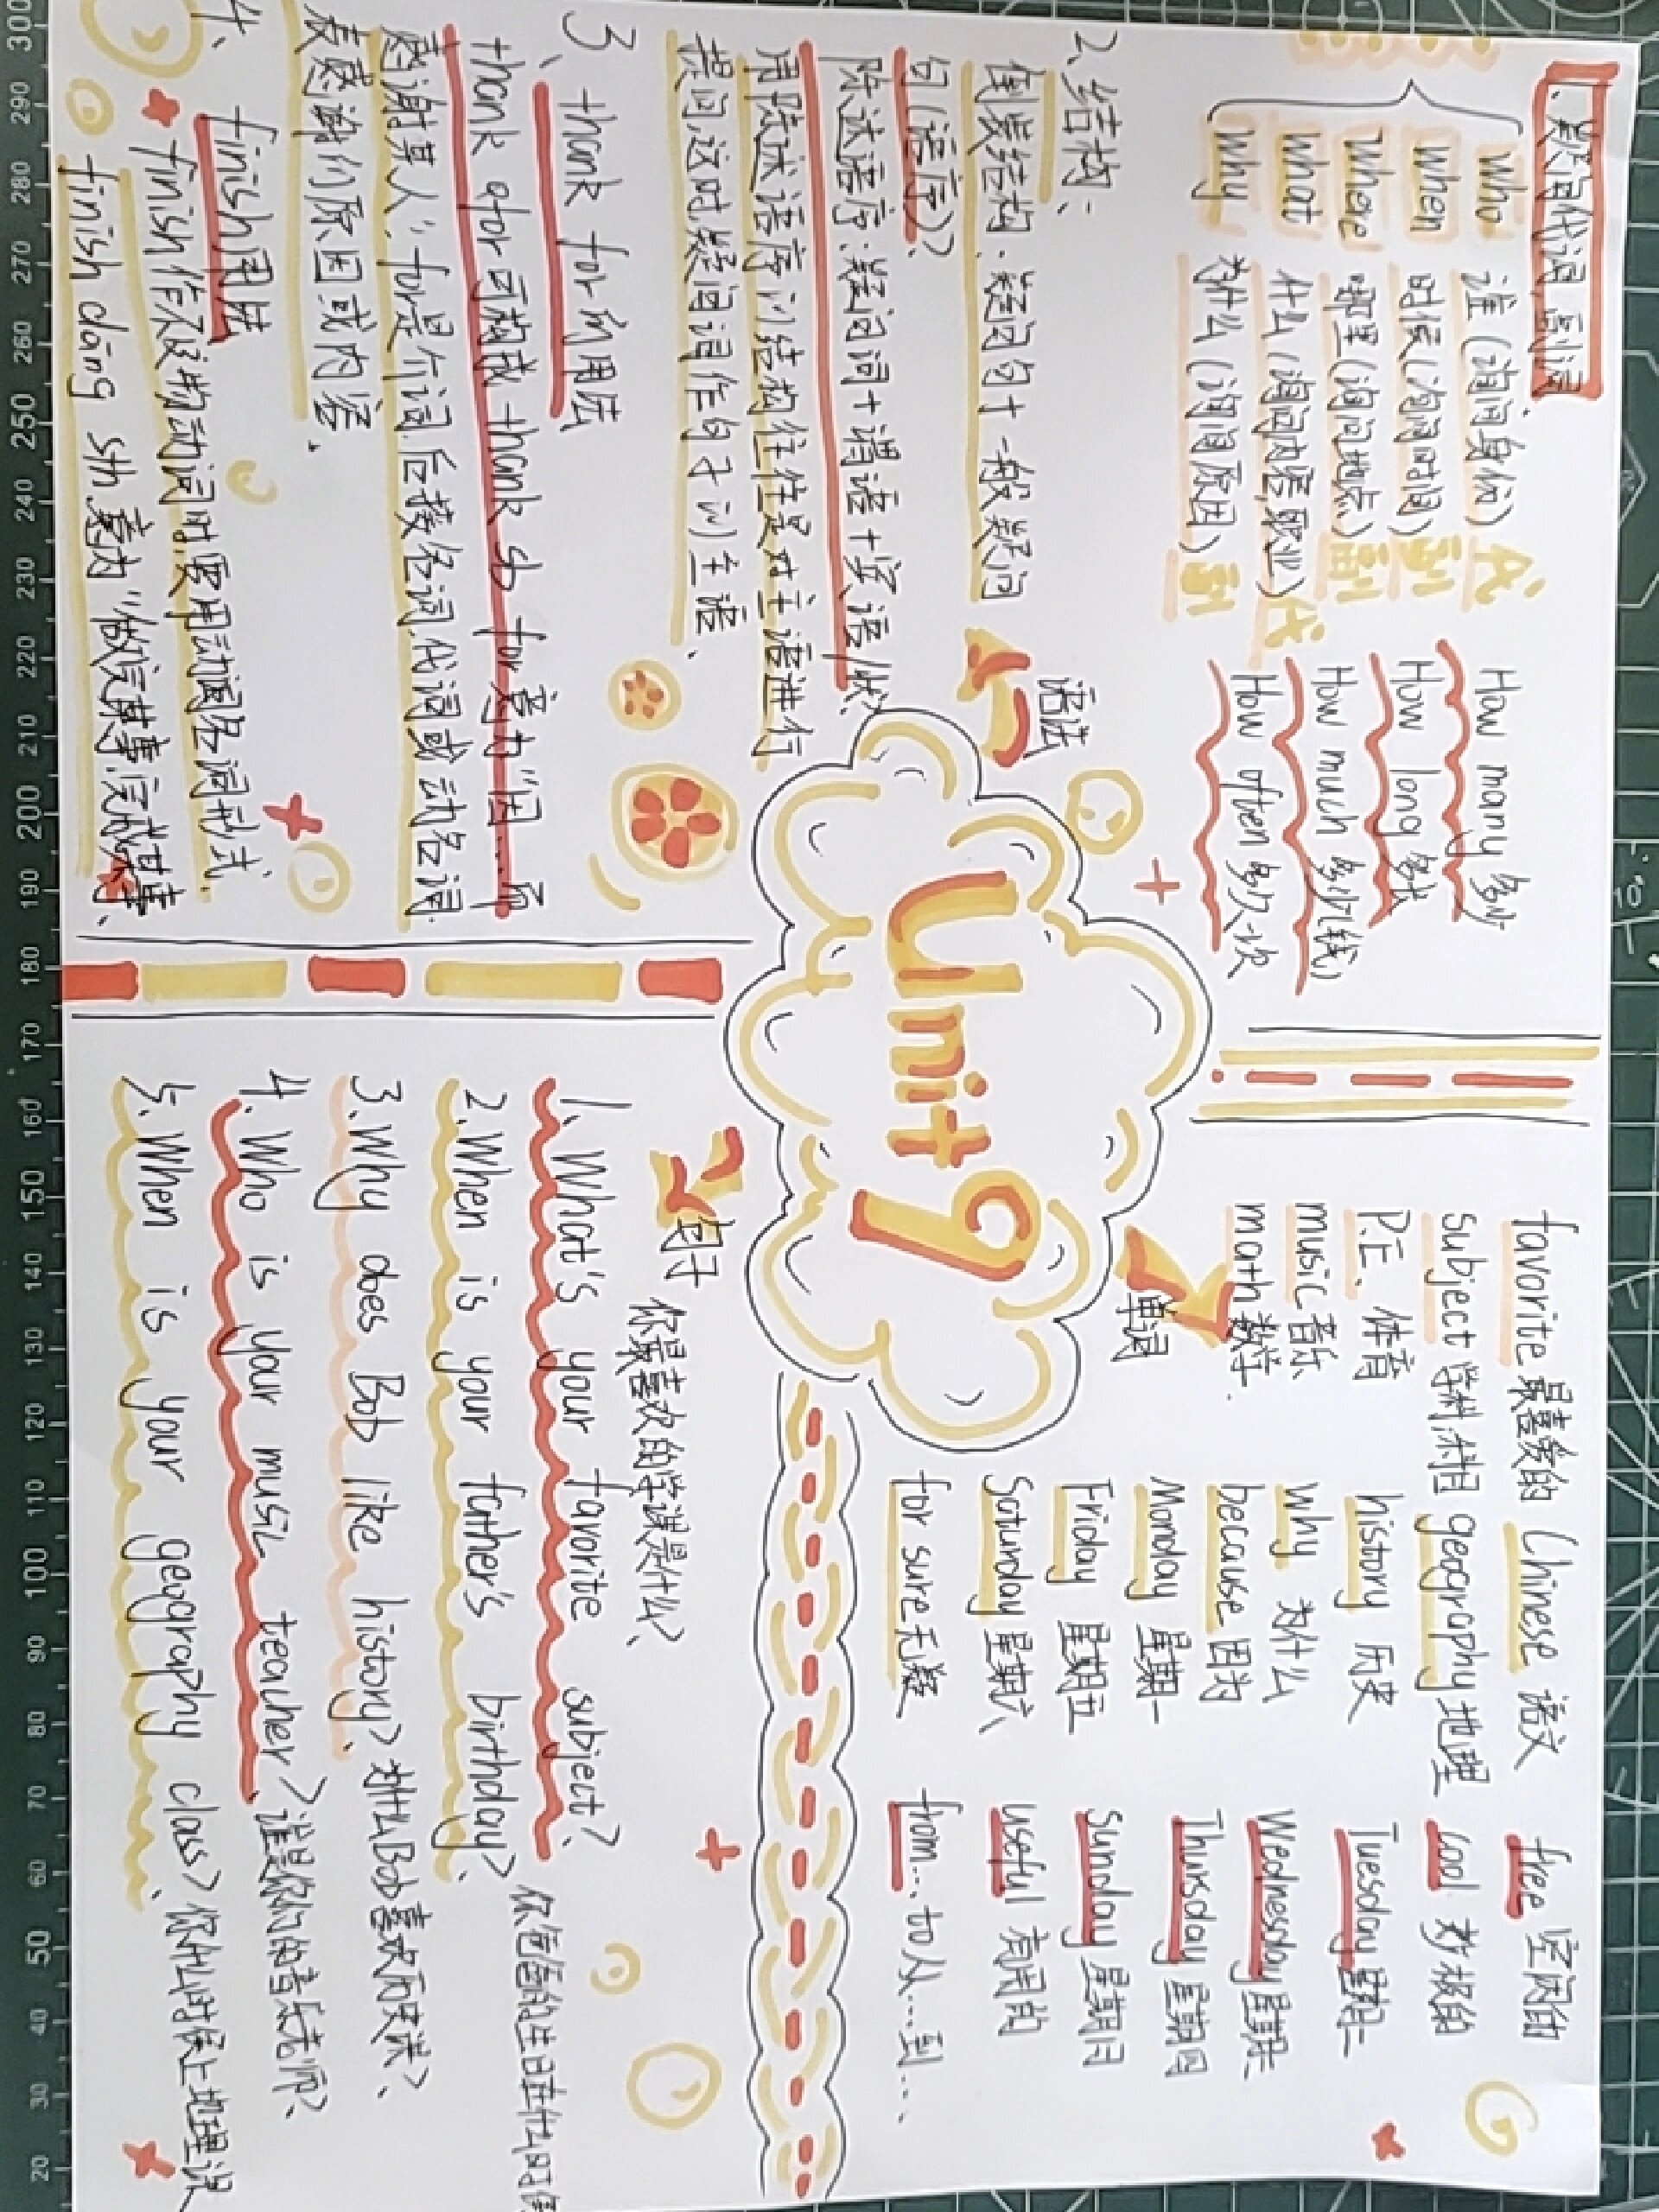 1.疑问代词,副词
who 谁（询问身份）代
when 时候（询问时间）副
where 哪里（询问地点）副
what 什么（询问内容,职业）代
why 为什么（询问原因）副
How many 多少
How long 多长
How much 多少(钱)
How often 多久一次
语法
2、结构：
倒装结构：疑问句+一般疑问
句（语序）?
陈述语序：疑问词+谓语+宾语/状
用陈述语序的结构往往是对主语进行
提问,这时,疑问词作句子的主语、
3、thank for的用法
thank for可构成thank sb for意为"因...而
感谢某人",for是介词,后接名词,代词或动名词
表感谢的原因或内容.
4、finish用法
finish作及物动词时,要用动词名词形式.
finish doing sth 意为"做完某事,完成某事、
Unit 9
单词
favorite 最喜爱的
subject 学科,科目
P.E. 体育
music 音乐
math 数学.
Chinese 语文
geography 地理
history 历史
why 为什么
because 因为
Monday 星期一
Friday 星期五
Saturday 星期六
for sure 无疑
free 空闲的
cool
Tuesday 星期二
Wednesday 星期三
Thursday 星期四
Sunday 星期日
useful 有用的
from...to 从...到...
句子
你最喜欢的学课是什么、
1、What's your favorite subject?
2.When is your father's birthday?
你爸爸的生日在什么时候
3.Why does Bob like history? 为什么Bob喜欢历史课?、
4.Who is your music teacher? 谁是你的音乐老师?、
5.When is your geography class? 你什么时候上地理课